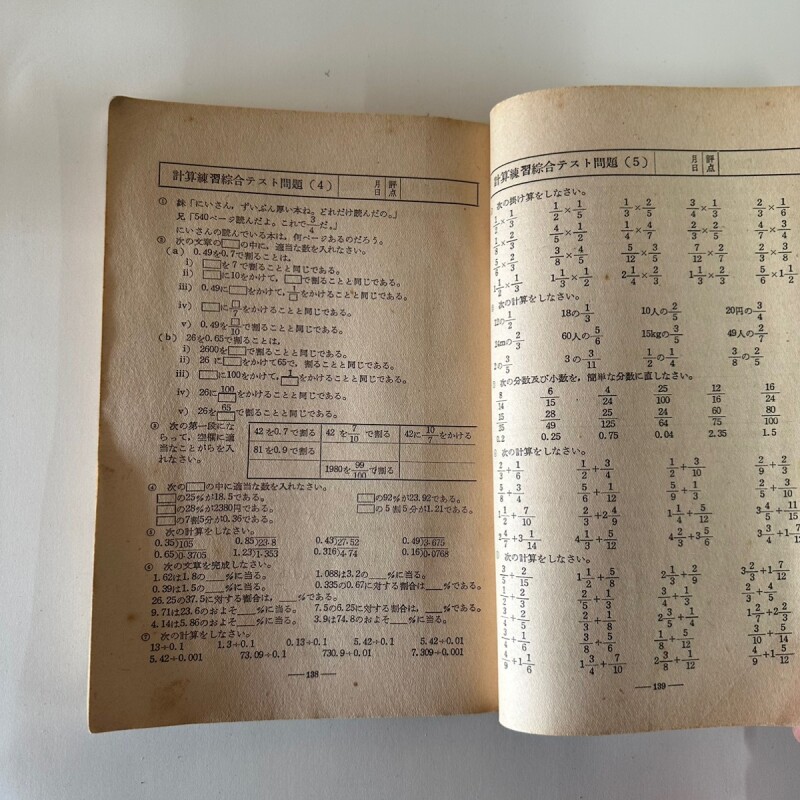 計算練習綜合テスト問題（4） 月日 評点
① 妹「にいさん，ずいぶん厚い本ね。どれだけ読んだの。」
兄「540ページ読んだよ。これで3/4だ。」
にいさんの読んでいる本は，何ページあるのだろう。
② 次の文章の□の中に，適当な数を入れなさい。
（a） 0.49を0.7で割ることは，
i） □を7で割ることと同じである。
ii） □に10をかけて，□で割ることと同じである。
iii） 0.49に□をかけて，1/□をかけることと同じである。
iv） □に□/7をかけることと同じである。
v） 0.49を□/10で割ることと同じである。
（b） 26を0.65で割ることは，
i） 2600を□で割ることと同じである。
ii） 26に□をかけて65で，割ることと同じである。
iii） □に100をかけて，1/□をかけることと同じである。
iv） 26に100/□をかけることと同じである。
v） 26を65/□で割ることと同じである。
③ 次の第一段にならって，空欄に適当なことがらを入れなさい。
42を0.7で割る 42を7/10で割る 42に10/7をかける
81を0.9で割る
1980を99/100で割る
④ 次の□の中に適当な数を入れなさい。
□の25%が18.5である。 □の92%が23.92である。
□の28%が2380円である。 □の5割5分が1.21である。
□の7割5分が0.36である。
⑤ 次の計算をしなさい。
0.35)105 0.85)23.8 0.43)27.52 0.49)3.675
0.65)0.3705 1.23)1.353 0.316)4.74 0.16)0.0768
⑥ 次の文章を完成しなさい。
1.62は1.8の___%に当る。 1.088は3.2の___%に当る。
0.39は1.5の___%に当る。 0.335の0.67に対する割合は___%である。
26.25の37.5に対する割合は___%である。
9.71は23.6のおよそ___%に当る。 7.5の6.25に対する割合は，___%である。
4.14は5.86のおよそ___%に当る。 3.9は74.8のおよそ___%に当る。
⑦ 次の計算をしなさい。
13÷0.1 1.3÷0.1 0.13÷0.1 5.42÷0.1 5.42÷0.01
5.42÷0.001 73.09÷0.1 730.9÷0.01 7.309÷0.001
—138—
計算練習綜合テスト問題（5） 月日 評点
次の掛け算をしなさい。
1/2×1/3 1/2×1/5 1/3×2/5 3/4×1/3 2/3×1/6
4/5×1/2 1/4×4/7 2/3×2/5 3/4×
5/6×2/3 3/8×4/5 5/12×3/5 7/12×2/7 2/3×3/8
1 1/2×1/3 1 1/3×1/2 2 1/4×2/3 1 1/3×2/3 5/6×1 1/2
次の計算をしなさい。
1/2 18の1/3 10人の2/5 20円の3/4
kmの2/3 60人の5/6 15kgの3/5 49人の2/7
の3/5 3の3/11 1/2の1/4 3/8の2/5
次の分数及び小数を，簡単な分数に直しなさい。
8/14 6/15 4/24 25/100 12/16 16/24
15/25 28/49 25/125 24/64 60/75 80/100
0.2 0.25 0.75 0.04 2.35 1.5
次の計算をしなさい。
2/3+1/6 1/2+3/4 1/2+3/10 2/9+2/3
5/8+3/4 5/6+1/12 5/9+1/3 2/5+3/10
1 1/2+7/10 2/3+2 4/9 1 1/4+5/12 3 4/5+11/15
2 4/7+3 1/14 4 1/3+5/12 4 2/3+3 5/6 3 3/4+1 7/12
次の計算をしなさい。
3/5+2/15 1 1/2+5/8 2 1/3+2/9 3 2/3+1 7/12
2/5+1/3 3/4+1/3
3/4+2/5 2/3+1/8 2 3/5+1/4 1 2/7+2 2/3
3/4+1/6 3/8+5/6 1/8+5/12 3/10+5/14
4/9+1 1/6 1 3/4+7/10 2 3/8+1/12 4/9+1 5/12
—139—